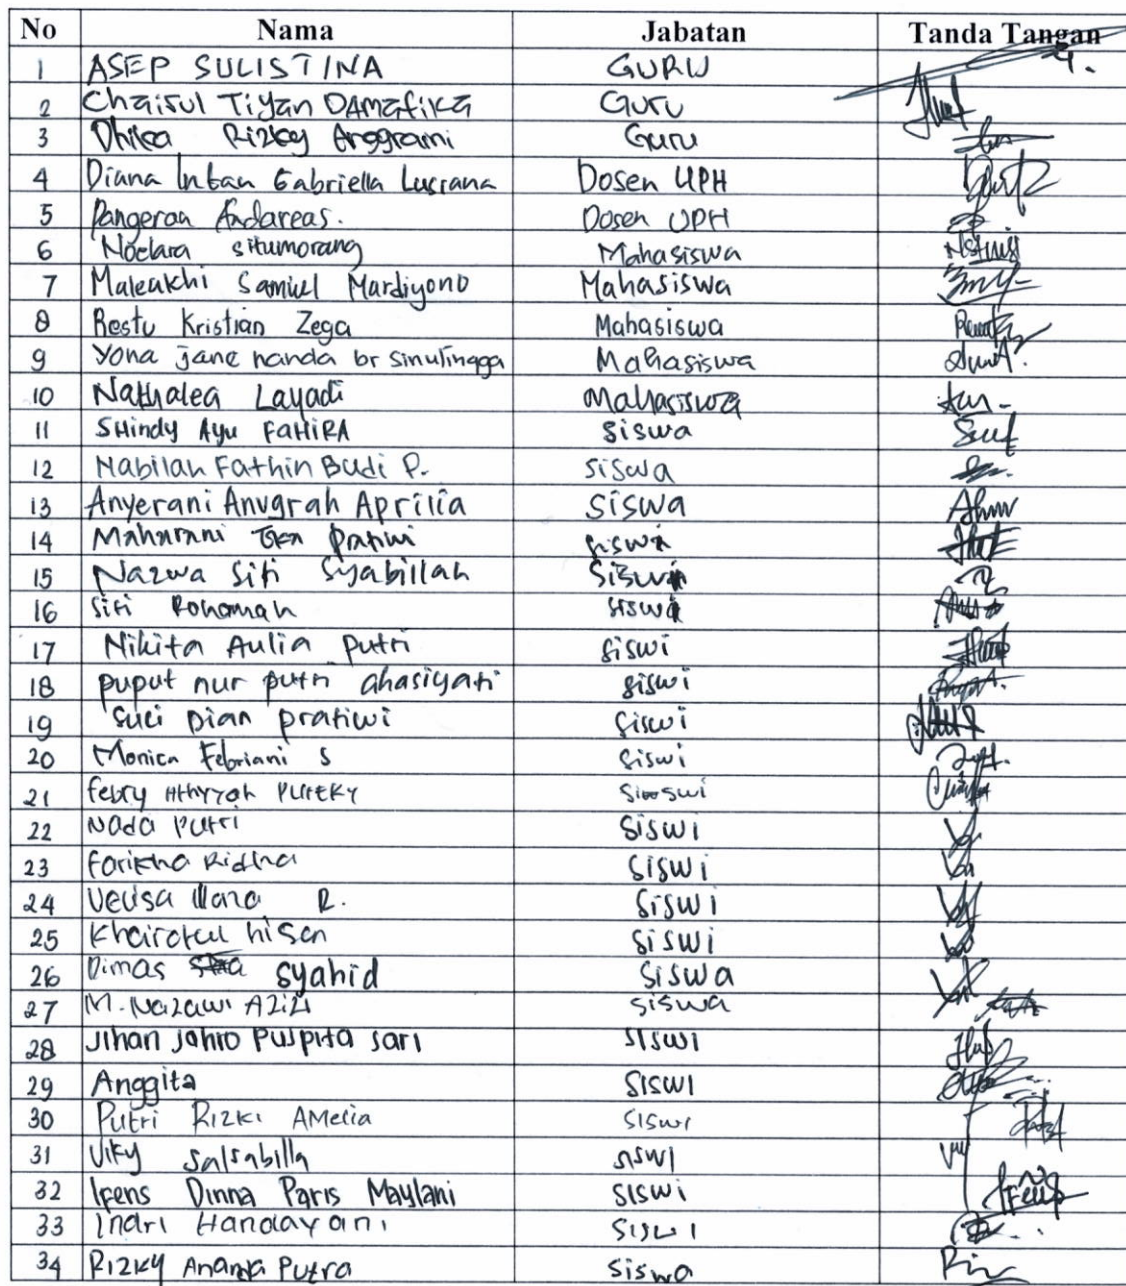 No Nama Jabatan Tanda Tangan
1 ASEP SULISTINA GURU
2 Chairul Tiyan DAMAfika Guru
3 Dhika Rizky Anggraini Guru
4 Diana Intan Gabriella Lusiana Dosen UPH
5 Pangeran Andareas. Dosen UPH
6 Noelara situmorang Mahasiswa
7 Maleakhi Samuel Mardiyono Mahasiswa
8 Restu Kristian Zega Mahasiswa
9 Yona jane nanda br sinulingga Mahasiswa
10 Nathalea Layadi Mahasiswa
11 SHindy Ayu FAHIRA siswa
12 Nabilah Fathin Budi P. siswa
13 Anyerani Anugrah Aprilia siswa
14 Maharani pratiwi siswi
15 Nazwa Siti Syabillah Siswi
16 Siti Rohamah siswi
17 Nikita Aulia Putri siswi
18 puput nur putri ahasiyati siswi
19 Suci Dian pratiwi siswi
20 Monica Febriani S siswi
21 febry siswi
22 Nada Putri siswi
23 Farikha Ridhna siswi
24 R. siswi
25 hisan siswi
26 Dimas syahid siswa
27 M. Nazawi Azizi siswa
28 Jihan Jahro Puspita sari siswi
29 Anggita siswi
30 Putri Rizki Amelia siswi
31 Viky salsabilla siswi
32 Ifens Dinna Paris Maylani siswi
33 Indri Handayani siswi
34 Rizky Ananda Putra siswa